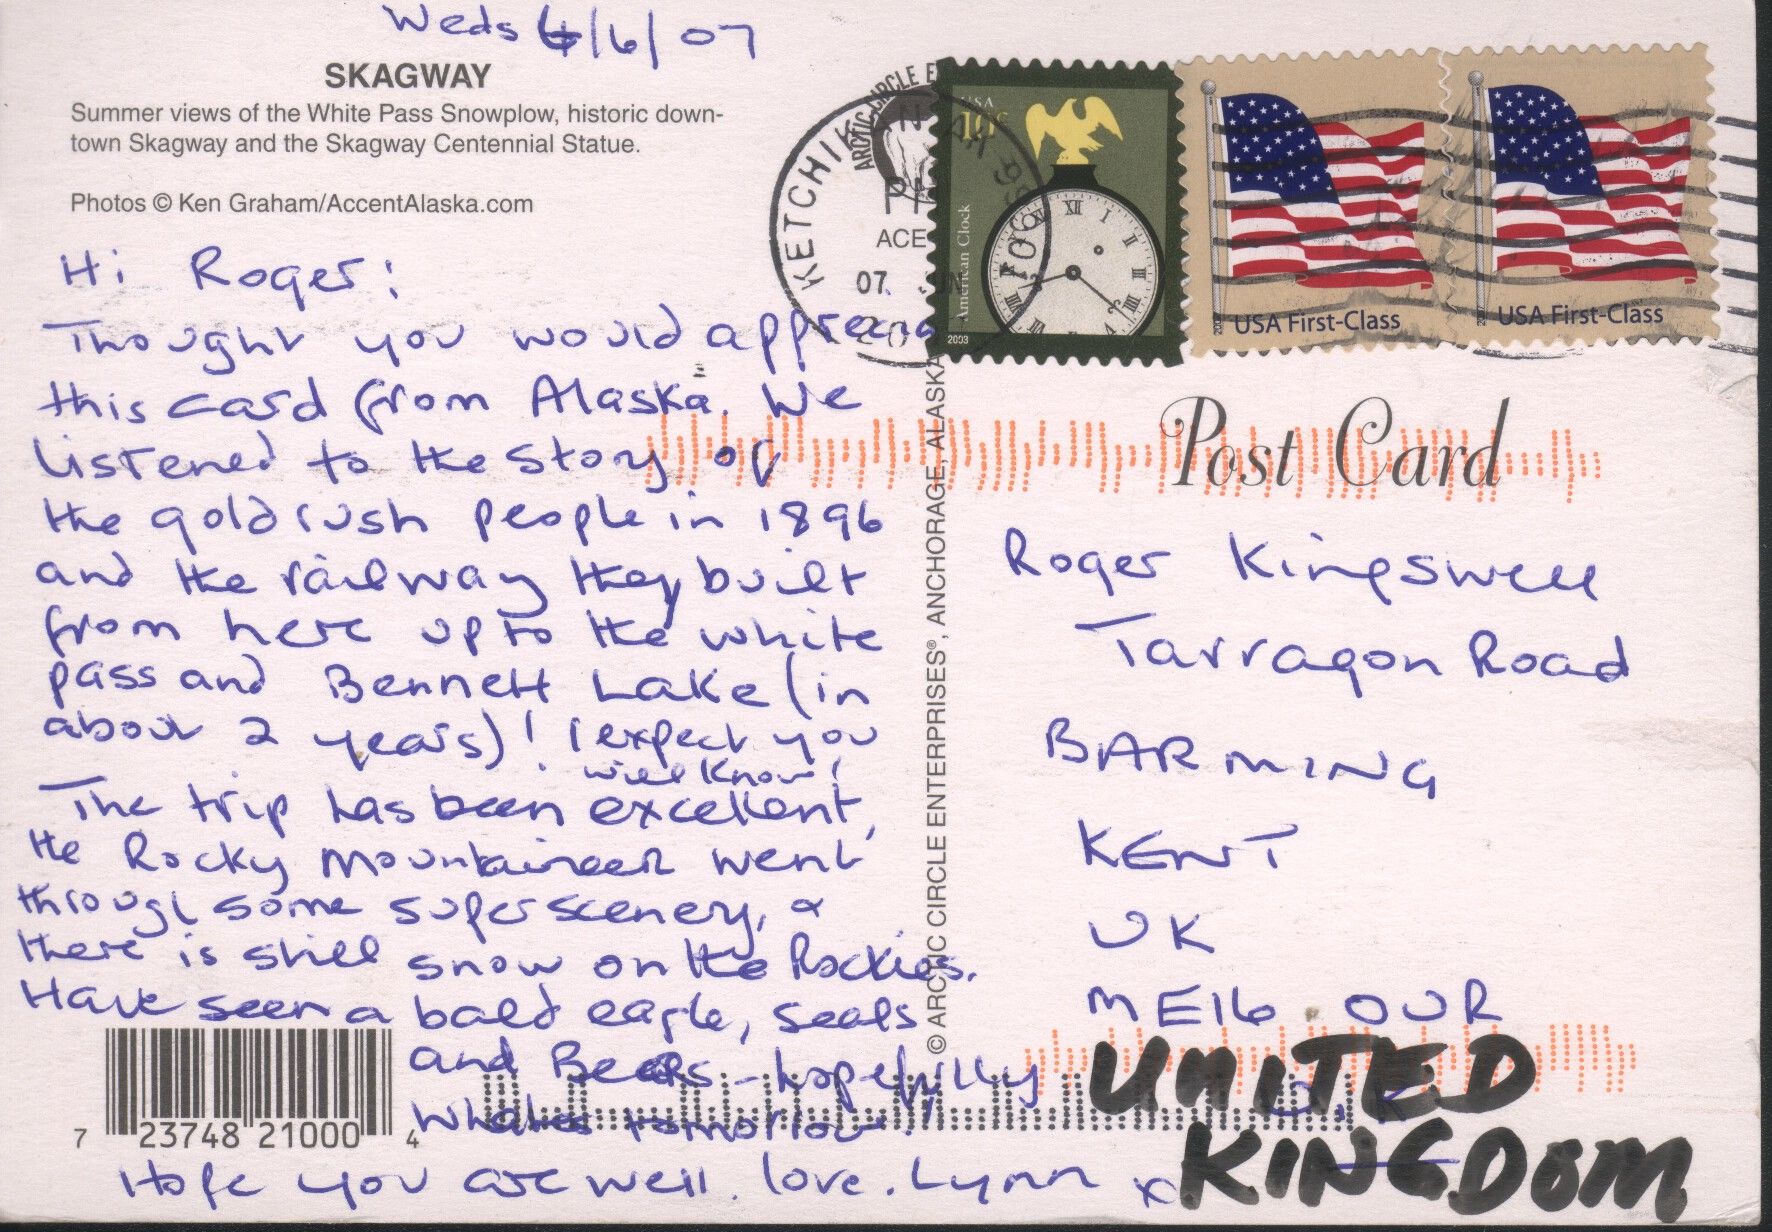 Weds 6/6/07
SKAGWAY
Summer views of the White Pass Snowplow, historic down-
town Skagway and the Skagway Centennial Statue.
Photos © Ken Graham/AccentAlaska.com
Hi Roger;
Thought you would apprecia
this card from Alaska. We
Listened to the story of
the gold rush people in 1896
and the railway they built
from here up to the white
pass and Bennett Lake (in
about 2 years)! I expect you
will know!
The trip has been excellent,
the Rocky Mountaineer went
through some super scenery, &
there is still snow on the Rockies.
Have seen a bald eagle, seals
and Bears - hopefully
whales tomorrow!
Hope you are well. love. Lynn x
7 23748 21000 4
© ARCTIC CIRCLE ENTERPRISES®, ANCHORAGE, ALASKA
ARCTIC CIRCLE E
ACE
KETCHIK N AK 99901
PM
07 JUN
USA
10c
American Clock
2003
XII I II III IIII V
USA First-Class
USA First-Class
Post Card
Roger Kingswell
Tarragon Road
BARMING
KENT
UK
ME16 OUR
U.K
UNITED
KINGDOM